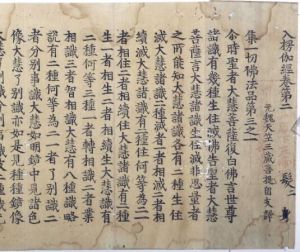 入楞伽經卷第二 髮
元魏天竺三藏菩提留支譯
集一切佛法品第三之一
尒時聖者大慧菩薩復白佛言世尊
諸識有幾種生住滅佛告聖者大慧
菩薩言大慧諸識生住滅非思量者
之所能知大慧諸識各有二種生住
滅大慧諸識二種滅者一者相滅二者相
續滅大慧諸識有二種住何等為二一
者相住二者相續住大慧諸識有二種
生一者相生二者相續生大慧識有
三種何等三種一者轉相識二者業
相識三者智相識大慧有八種識略
說有二種何等為二一者了別識二
者分別事識大慧如明鏡中見諸色
像大慧了別識亦如是見種種鏡像